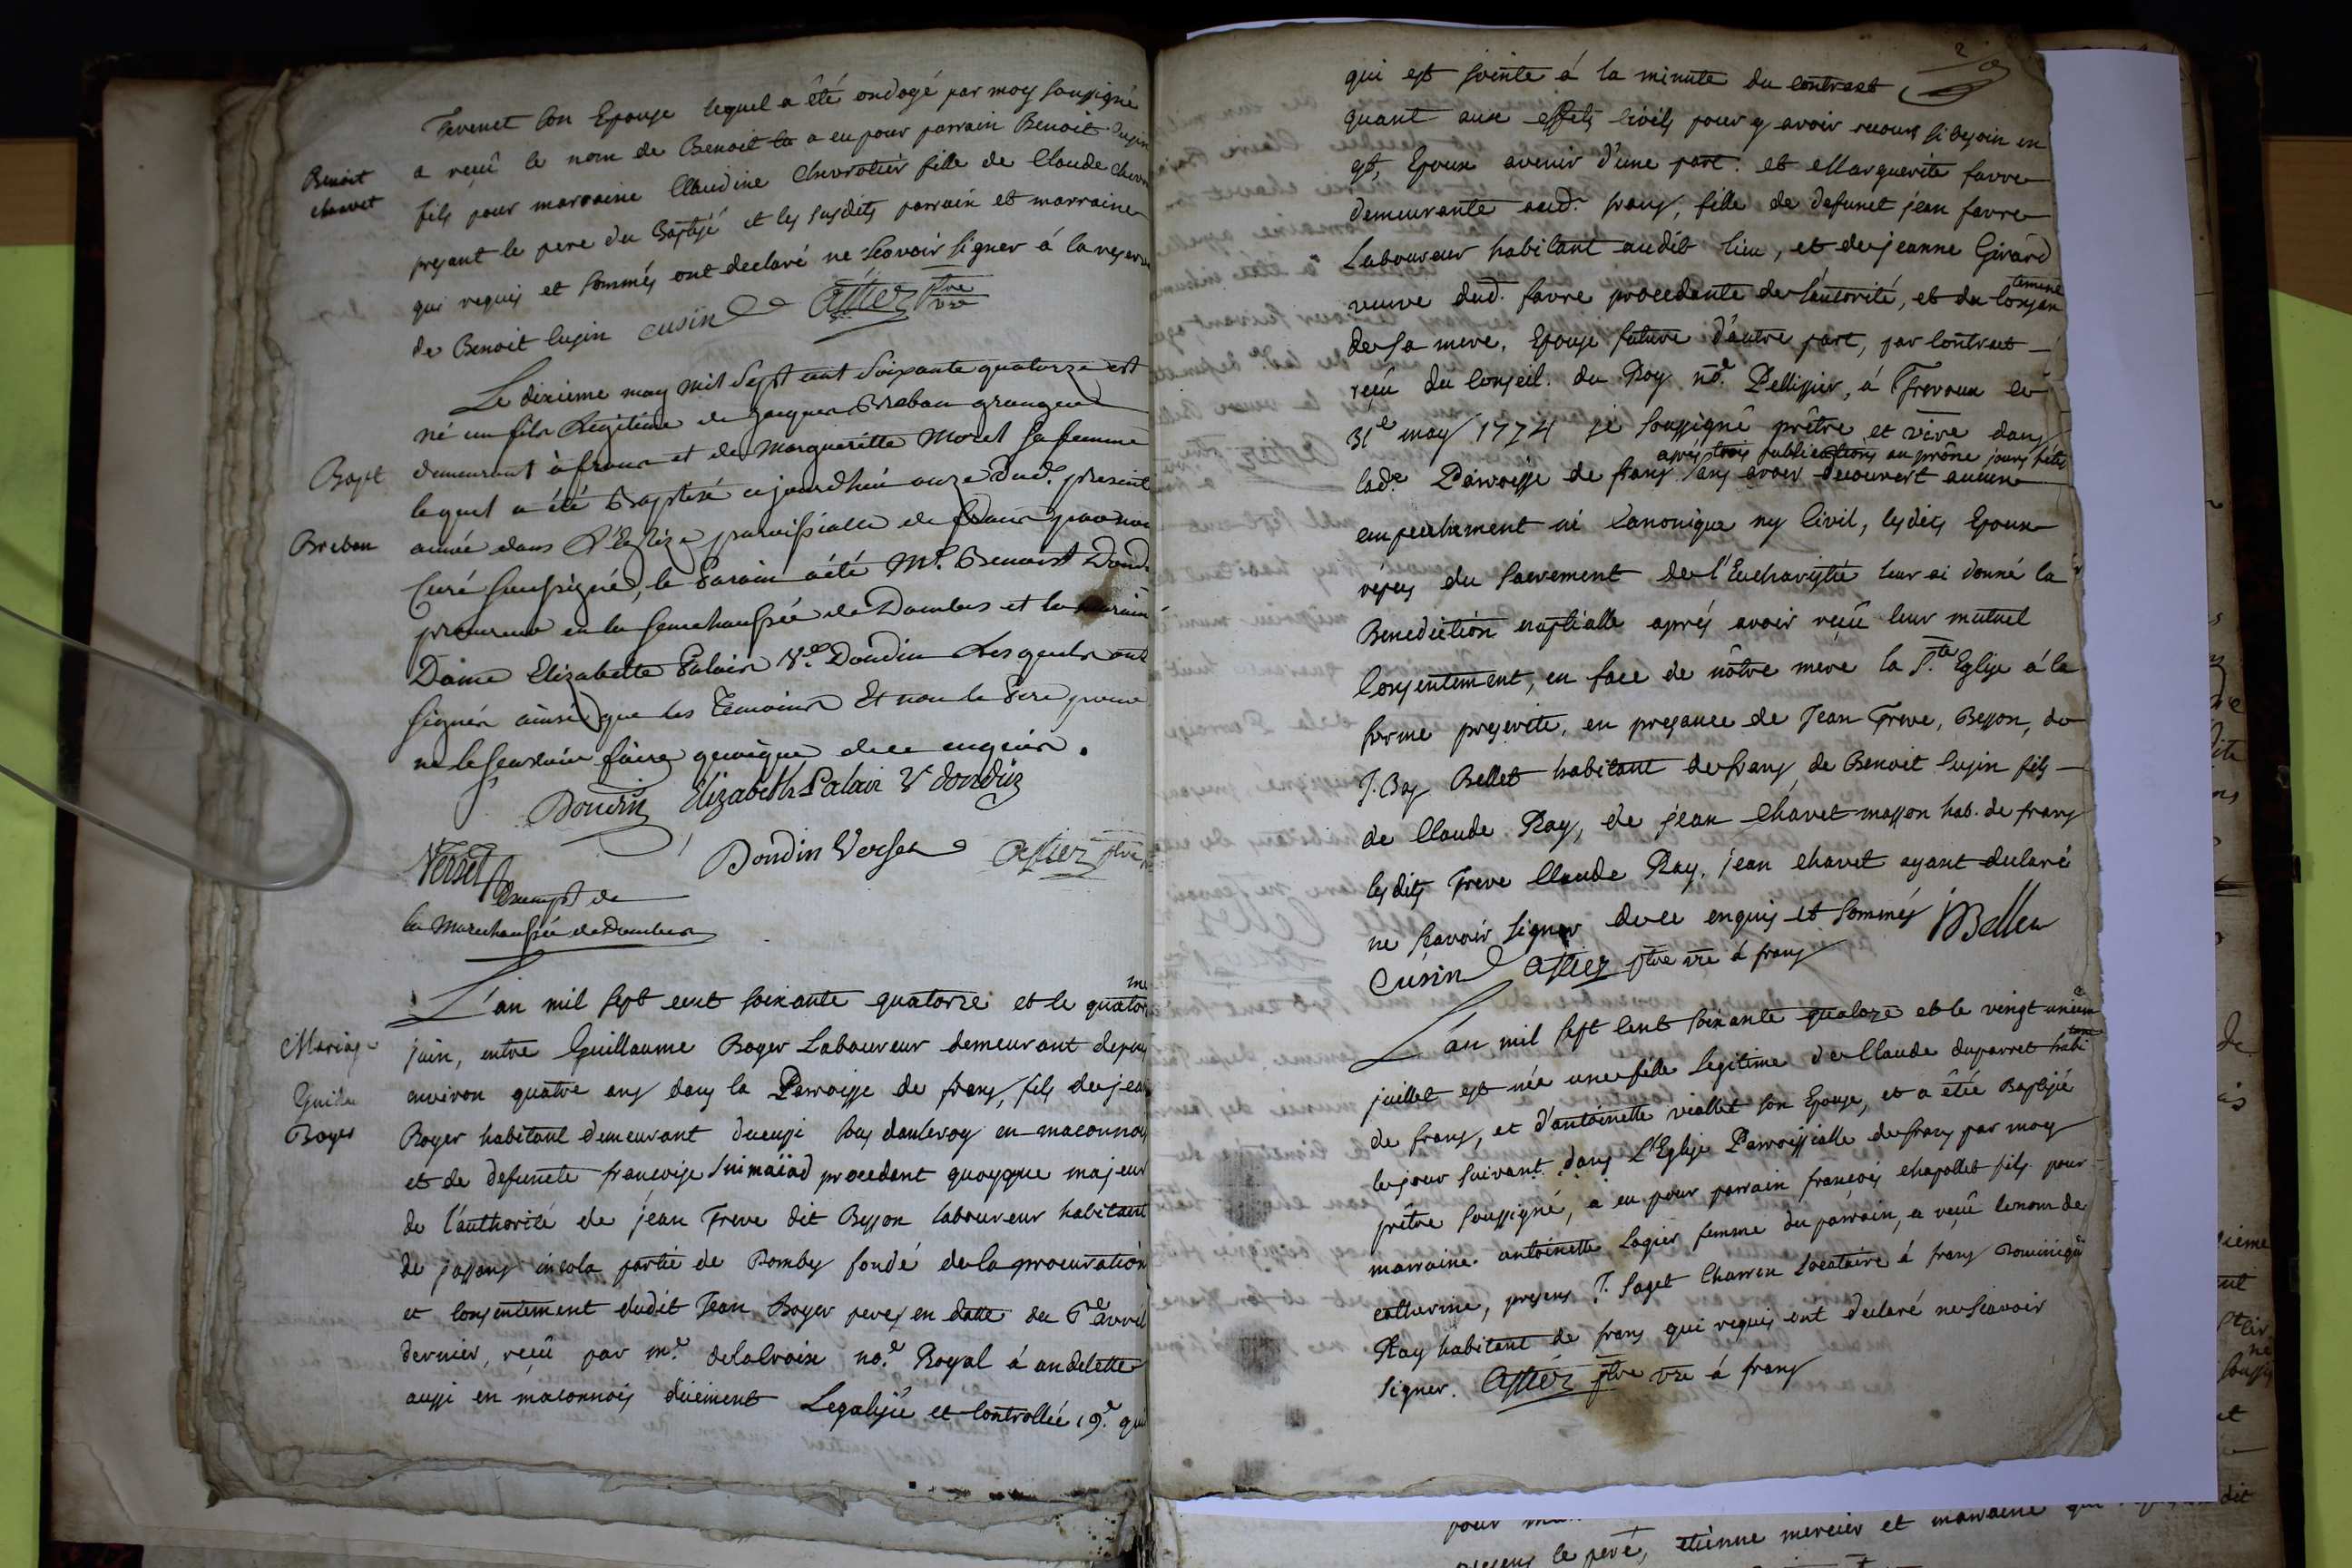 Tevenet son Epouse lequel a été ondogé par moy soussigné
Benoit
chavet
a reçû le nom de Benoit a eu pour parrain Benoit Cusin
fils pour marraine Claudine Chevrotier fille de Claude
presant le pere du Baptisé et les susdits parrain et marraine
qui requis et sommés ont declaré ne sçavoir signer á la
de Benoit Cusin cusin astier ptre vre
Le dixieme may mil sept cent soixante quatorze est
né un fils Légitime de Jacques Breban granger
Bapt
demeurant à frans et de Margueritte Morel sa femme
lequel a été Baptisé cejourdhui onze dud. present
Breban
année dans L'Eglize paroissialle de frans par nous
Curé soussigné, le Parain a été Mr. Benoist
procureur en la senechaussée de Dombes et la maraine
Dame Elizabette Palais Ve. Doudin Lesquels ont
signés ainsi que les Temoins Et non le Pere pour
ne le sçavoir faire quoique de ce enquis.
Doudin Elizabeth Palais Ve doudin
Verset Doudin Verset astier ptre
Exempt de
la Marechaussée de Dombes
L'an mil sept cent soixante quatorze et le
Mariage
juin, entre Guillaume Boyer Laboureur demeurant depuis
Guille
environ quatre ans dans la Parroisse de frans, fils de jean
Boyer
Boyer habitant demeurant en maconnois
et de defuncte francoise procedant quoyque majeur
de l'authorité de jean Treve dit Besson laboureur habitant
de jassans partie de Domby fondé de la procuration
et consentement dudit Jean Boyer pere, en datte du avril
dernier, reçû par me. delacroix no.e Royal á andelatte
aussi en maconnois düement Legalisée et Controllée 19.e qui
2
qui est jointe á la minute du contract
quant aux effets civils pour y avoir recours si besoin en
est, Epoux avenir d'une part. et Marguerite favre
demeurante aud. frans, fille de defunct jean favre
Laboureur habitant audit lieu, et de jeanne Girard
veuve dud. favre procedante de l'autorité, et du consentement
de sa mere, Epouse future d'autre part, par contract
reçu du conseil. du Roy no.e Pellissier, á Trevoux le
31e may 1774 je soussigné prêtre et vire dans
après trois publications au prône jours fetés
lad.e Parroisse de frans sans avoir decouvert aucun
empechement ni Canonique ny Civil, lesdits Epoux
repus du sacrement de l'Eucharistie leur ai donné la
Benediction nuptialle aprés avoir reçû leur mutuel
Consentement, en face de nôtre mere la Ste. Eglise á la
forme prescrite, en presance de Jean Treve, Besson, de
J. Bay Bellet habitant de frans, de Benoit Cusin fils
de Claude Ray, de jean chavet masson hab. de frans
lesdits Treve Claude Ray, jean chavet ayant declaré
ne sçavoir signer de ce enquis et sommés JBBellet
Cusin astier ptre vre á frans
L'an mil sept cent soixante quatorze et le vingt unieme
juillet est née une fille legitime de Claude duparret habitant
de frans, et d'antoinette viallet son Epouse, et a étée Baptisée
le jour suivant dans L'Eglise Parroissialle de frans par moy
prêtre soussigné, a eu pour parrain françois chapollet fils pour
marraine antoinette Logier femme du parrain, a reçû le nom de
catherine, presens J. Saget Charron Locataire á frans Dominique
Ray habitant de frans qui requis ont declaré ne sçavoir
signer. astier ptre vre á frans
le pere, etienne mercier et marraine